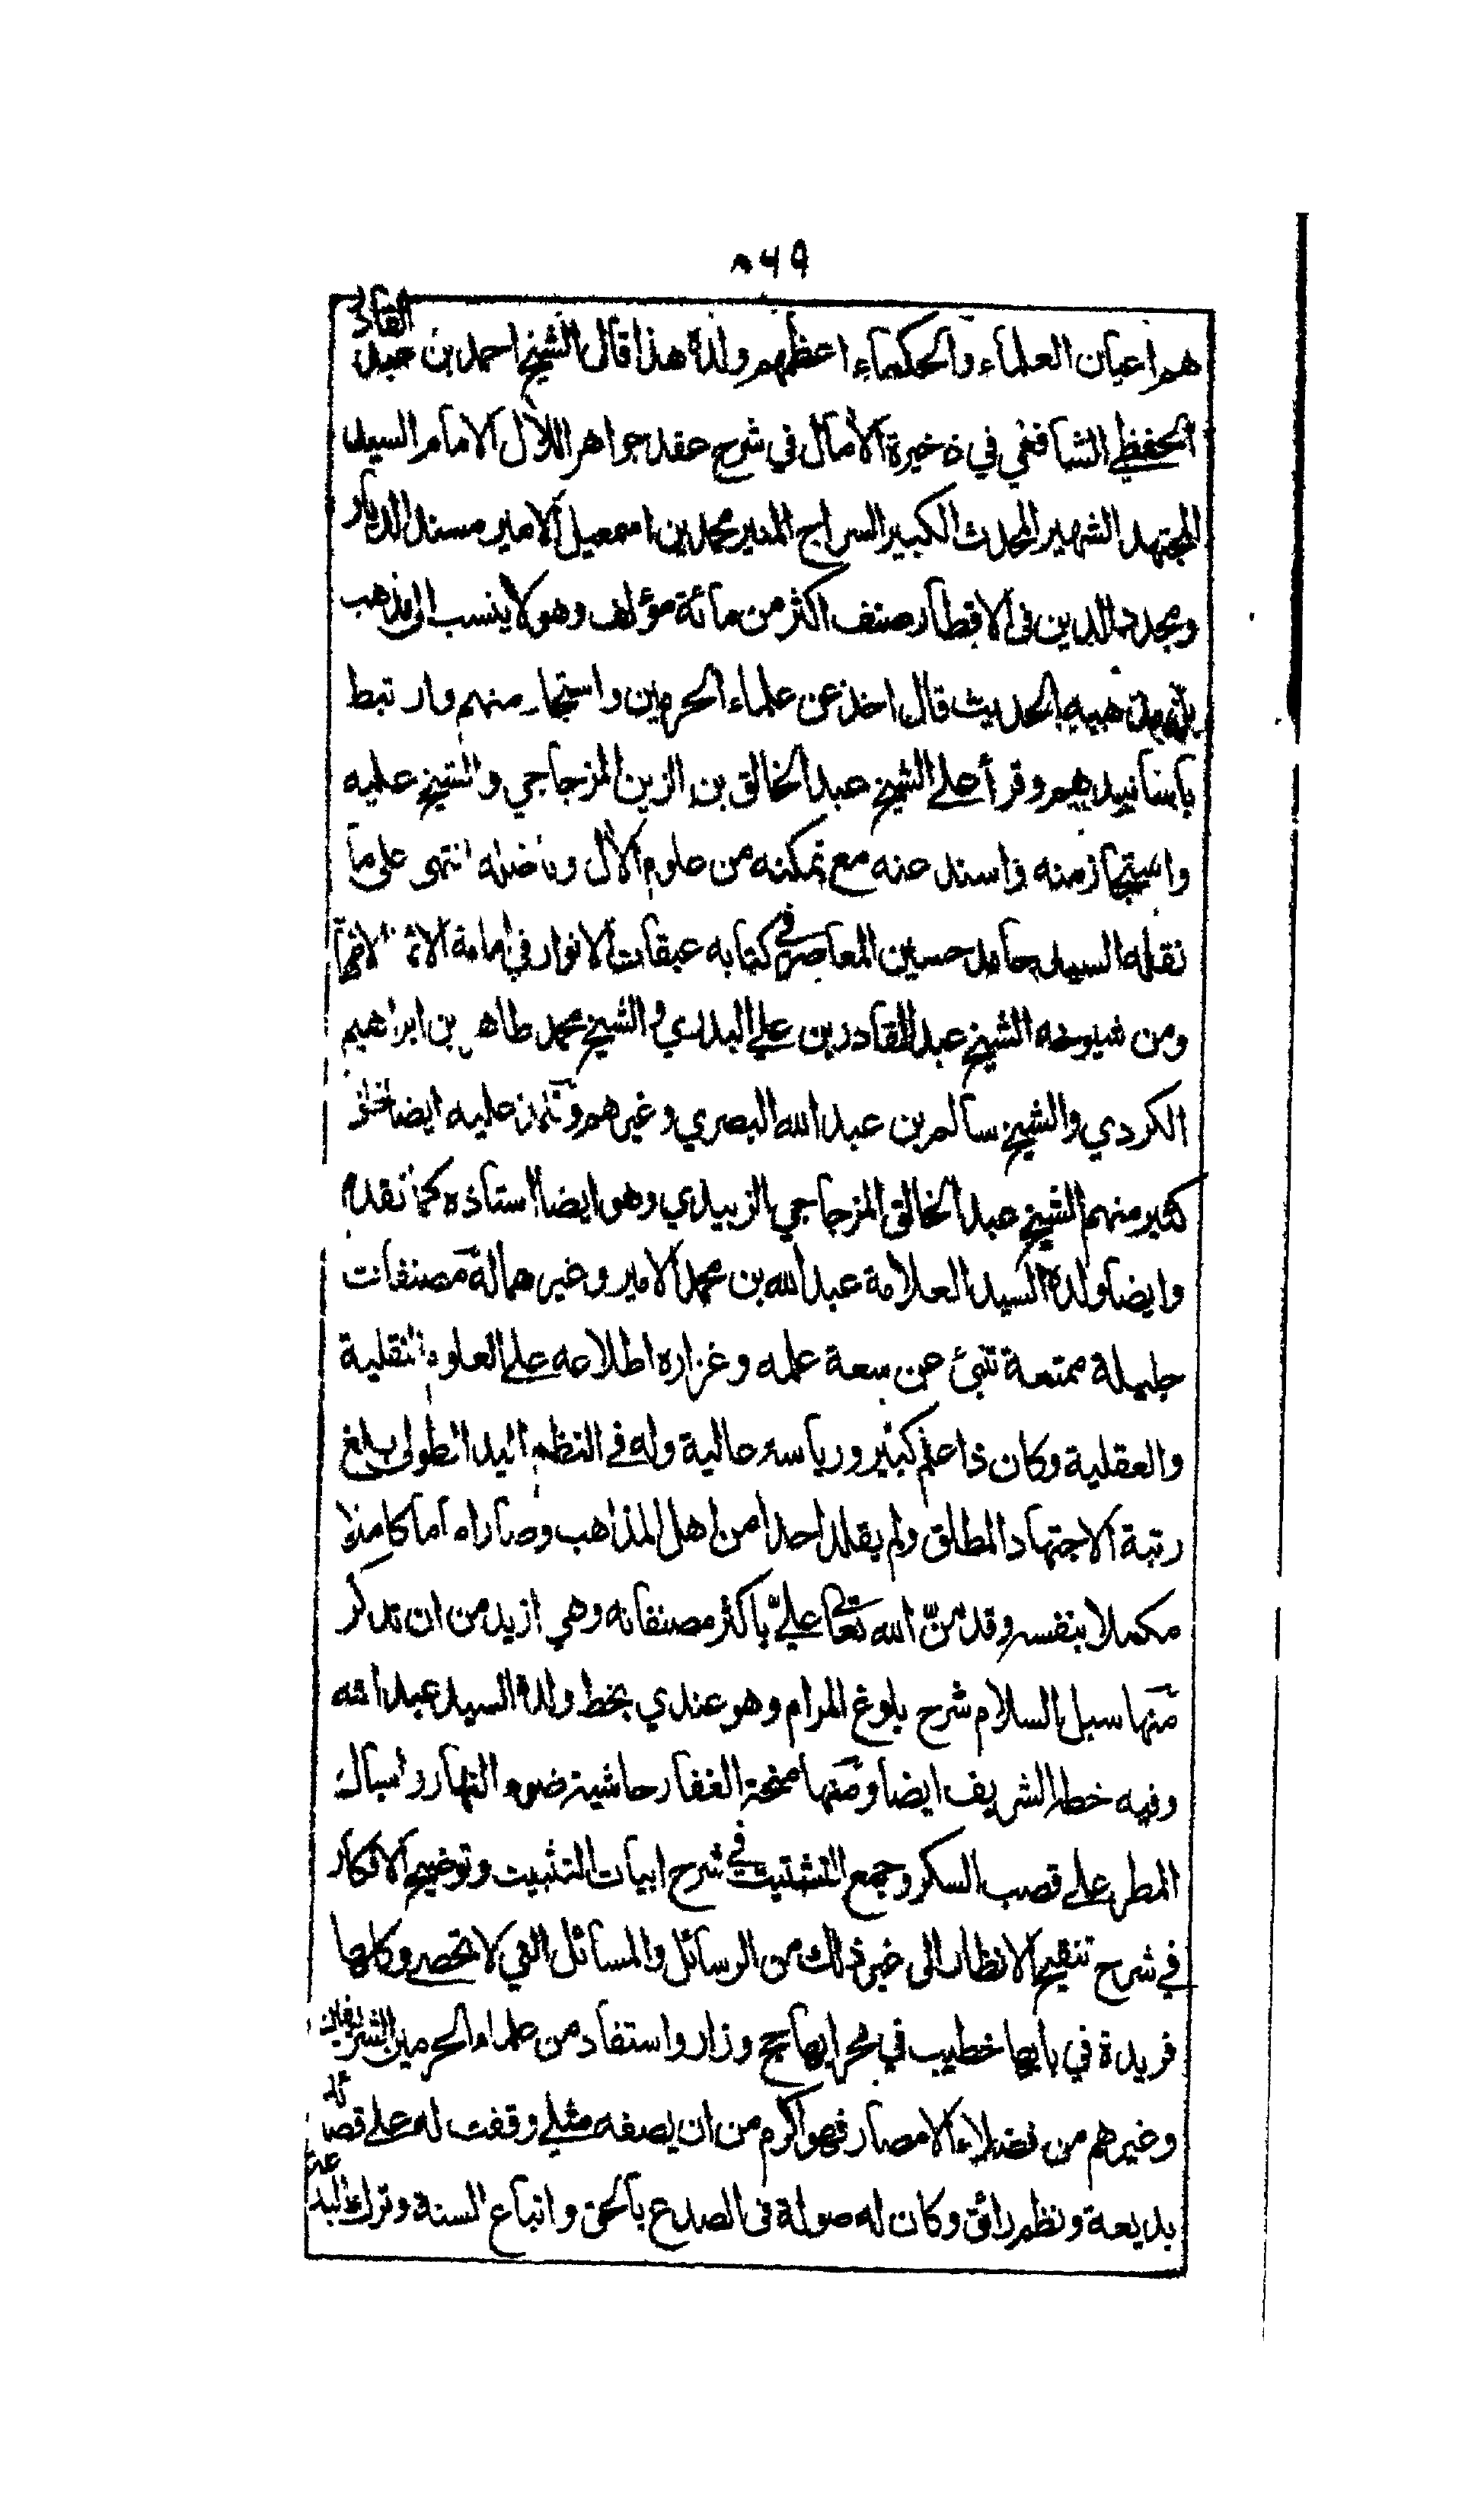 ٨٦٩
هم اعيان العلماء والحكماء اعظمهم ولده هذا قال الشيخ احمد بن عبد القادر
الحفظي الشافعي في ذخيرة الآمال في شرح عقد جواهر اللآل الامام السيد
المجتهد الشهير المحدث الكبير السراج المنير محمد بن اسمعيل الامير مسند الديار
ومجدد الدين في الاقطار صنف اكثر من مائة مؤلف وهو لا ينسب الى مذهب
بل مذهبه الحديث قال اخذ عن علماء الحرمين واستجاز منهم وارتبط
باسانيدهم وقرأ على الشيخ عبد الخالق بن الزين المزجاجي والشيخ عليه
واستجاز منه واسند عنه مع تمكنه من علوم الآل وتاصله انتهى على ما
نقله السيد حامد حسين المعاصر في كتابه عبقات الانوار في امامة الائمة الاطهار
ومن شيوخه الشيخ عبد القادر بن علي البدري والشيخ محمد طاهر بن ابراهيم
الكردي والشيخ سالم بن عبد الله البصري وغيرهم وتلمذ عليه ايضا خلق
كثير منهم الشيخ عبد الخالق المزجاجي الزبيدي وهو ايضا استاذه كما تقدم
وايضا ولده السيد العلامة عبد الله بن محمد الامير وغيرهما له مصنفات
جليلة ممتعة تنبئ عن سعة علمه وغزاره اطلاعه على العلوم النقلية
والعقلية وكان ذا علم كبير ورياسه عالية وله في النظم اليد الطولى بلغ
رتبة الاجتهاد المطلق ولم يقلد احدا من اهل المذاهب وصار اماما كاملا
مكملا بنفسه وقد منّ الله تعالى عليّ باكثر مصنفاته وهي ازيد من ان تذكر
منها سبل السلام شرح بلوغ المرام وهو عندي بخط ولده السيد عبد الله
وفيه خطه الشريف ايضا ومنها منحة الغفار حاشية ضوء النهار واسبال
المطر على قصب السكر وجمع التشتيت في شرح ابيات التثبيت وتوضيح الافكار
في شرح تنقيح الانظار الى غير ذلك من الرسائل والمسائل التي لا تحصى وكلها
فريدة في بابها خطيب في محرابها حج وزار واستفاد من علماء الحرمين الشريفين
وغيرهم من فضلاء الامصار فهو اكرم من ان يصفه مثلي وقفت له على قصائد
بديعة ونظم رائق وكان له صولة في الصدع بالحق واتباع السنة وترك البدعة